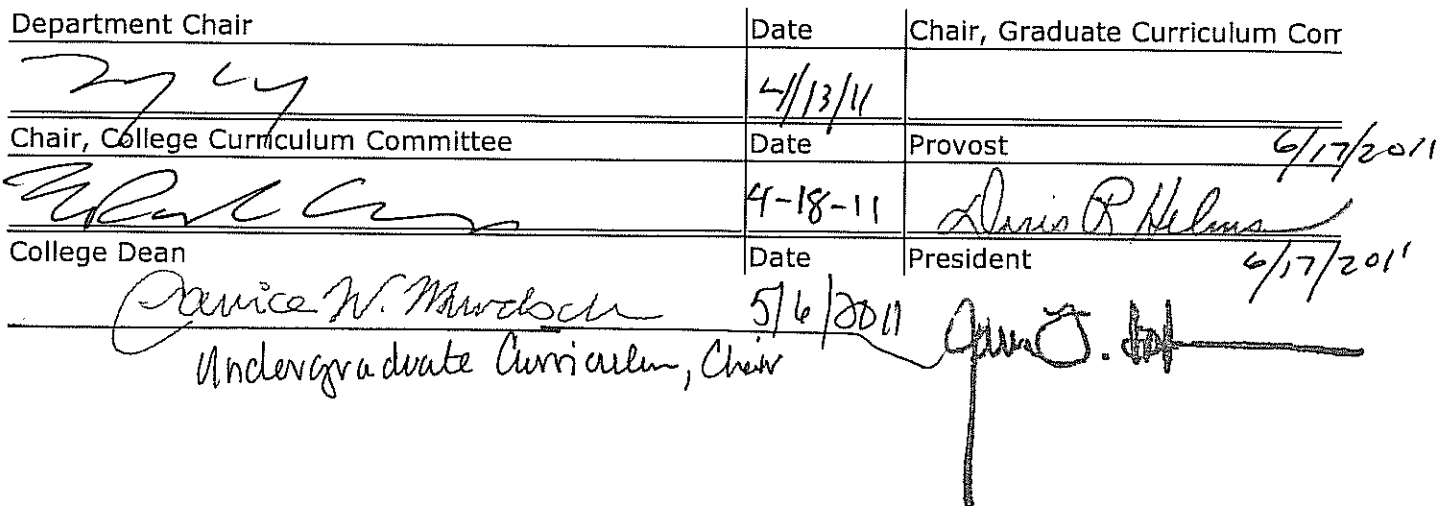 Department Chair Date Chair, Graduate Curriculum Com
4/13/11
Chair, College Curriculum Committee Date Provost 6/17/2011
4-18-11 Doris R Helms
College Dean Date President 6/17/2011
Janice W. Murdoch 5/6/2011
Undergraduate Curriculum, Chair